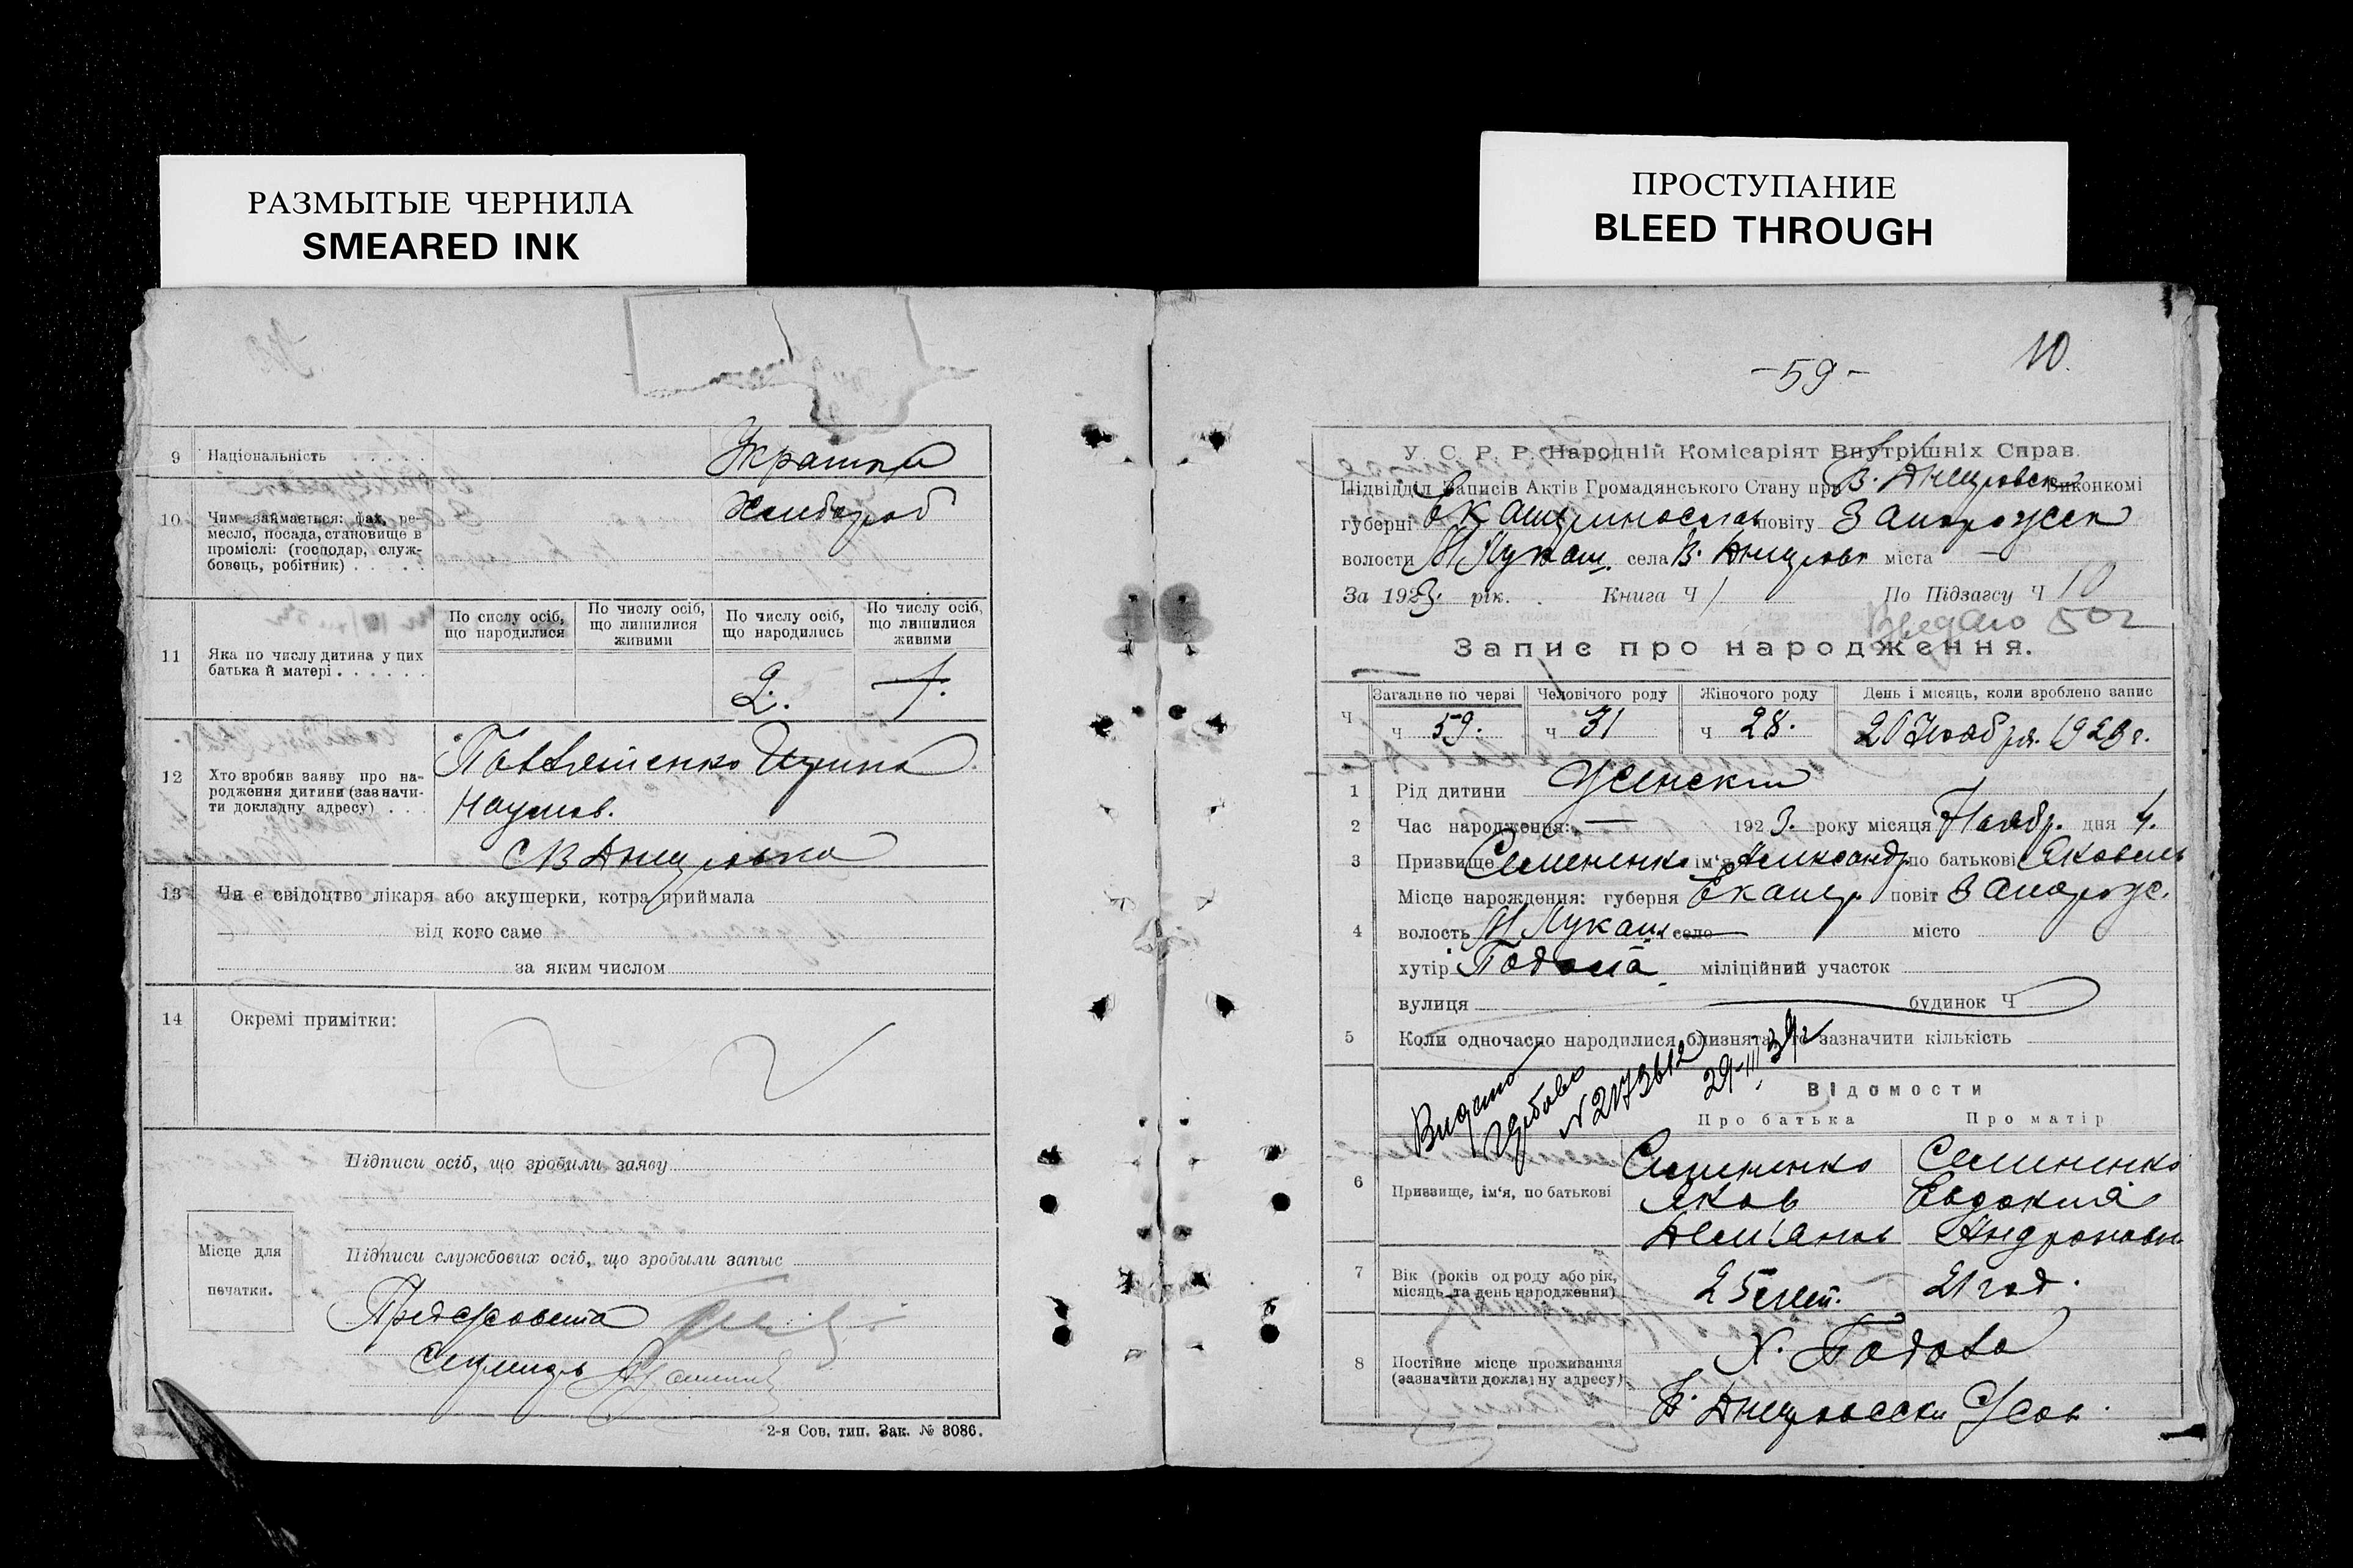 РАЗМЫТЫЕ ЧЕРНИЛА
SMEARED INK
ПРОСТУПАНИЕ
BLEED THROUGH
9 Національність
10 Чим займається: фах, ре-
месло, посада, становище в
промислі: (господар, служ-
бовець, робітник)
Хлибороб
11 Яка по числу дитина у цих
батька й матері
По сислу осіб, що народилися
По числу осіб, що лишилися живими
По числу осіб, що народились
По числу осіб, що лишилися живими
2.
12 Хто зробив заяву про на-
родження дитини (зазначи-
ти докладну адресу)
Наумов.
13 Чи є свідоцтво лікаря або акушерки, котра приймала
від кого саме
за яким числом
14 Окремі примітки:
Підписи осіб, що зробили заяву
Місце для
печатки.
Підписи службових осіб, що зробыли запыс
Предсровета
Секретарь
2-я Сов. тип. Зак. № 3086.
-59-
10
У. С. Р. Р. Народній Комісаріят Внутрішніх Справ.
Підвідділ Записів Актів Громадянського Стану при В. Днепровск Виконкомі
губерні Екатеринослав повіту Запорожск
волости М Лукаш. села В. Днепровк міста —
За 1923. рік. Книга Ч 1 По Підзагсу Ч 10
502
Запис про народження.
Загальне по черві Человічого роду Жіночого роду День і місяць, коли зроблено запис
Ч ч 59. ч 31 ч 28. 20 Ноября. 1923 г.
1 Рід дитини
2 Час народження: — 1923. року місяця Ноябр. дня 4.
3 Призвище Семененко ім'я Александр по батькові Яковель
4 Місце нарождення: губерня Екатер. повіт Запорож.
волость М Лукаш село місто
хутір міліційний участок
вулиця будинок Ч
5 Коли одночасно народилися близнята, то зазначити кількість
Видано
№ 2173612
29-III 39г
Відомости
Про батька Про матір
6 Призвище, ім'я, по батькові
Семененко Семененко
Яков Евдокия
Демьянов Андроновн
7 Вік (років од роду або рік,
місяць та день народження)
25 лет. 21 год.
8 Постійне місце проживання
(зазначити докладну адресу)